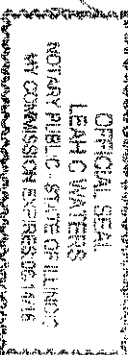 OFFICIAL SEAL
LEAH C WATERS
NOTARY PUBLIC - STATE OF ILLINOIS
MY COMMISSION EXPIRES:06/14/16